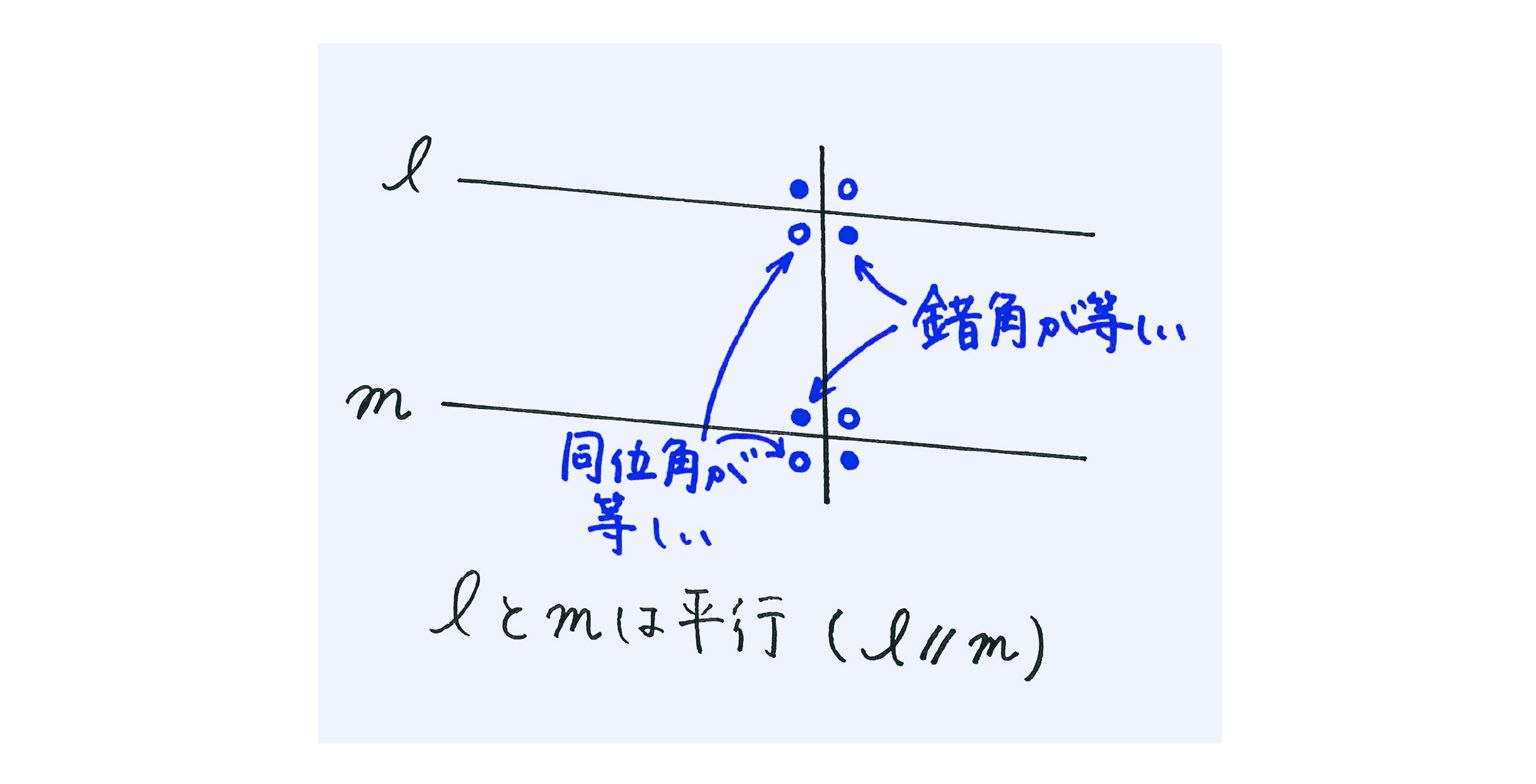 l
m
錯角が等しい
同位角が
等しい
lとmは平行 (l//m)